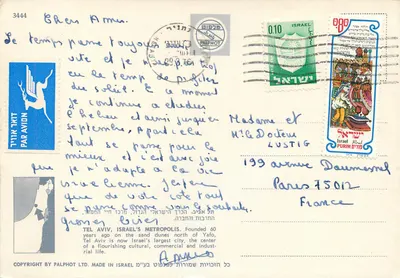 3444
Chers Amis.
Le temps passe toujours
vite et je n'ai pas
eu le temps de profiter
du soleil. En ce moment
je continue à étudier
l'hébreu et ainsi jusqu'en
septembre. A part cela
tout se passe pour le
mieux et c'est avec joie
que je m'adapte à la vie
israélienne. J'espère
que de votre côté tout
se passe comme vous le souhaitez
grosses bises
PALPHOT
ISRAEL
0.10
ישראל
0.80
ישראל
Israel
דואר אויר
PAR AVION
Madame et
M. le Docteur
LUSTIG
199 avenue Daumesnil
Paris 75012
France
TEL AVIV, ISRAEL'S METROPOLIS. Founded 60
years ago on the sand dunes north of Yafo,
Tel Aviv is now Israel's largest city, the center
of a flourishing cultural, commercial and indust-
rial life.
COPYRIGHT BY PALPHOT LTD. MADE IN ISRAEL כל הזכויות שמורות לפלפוט בע"מ